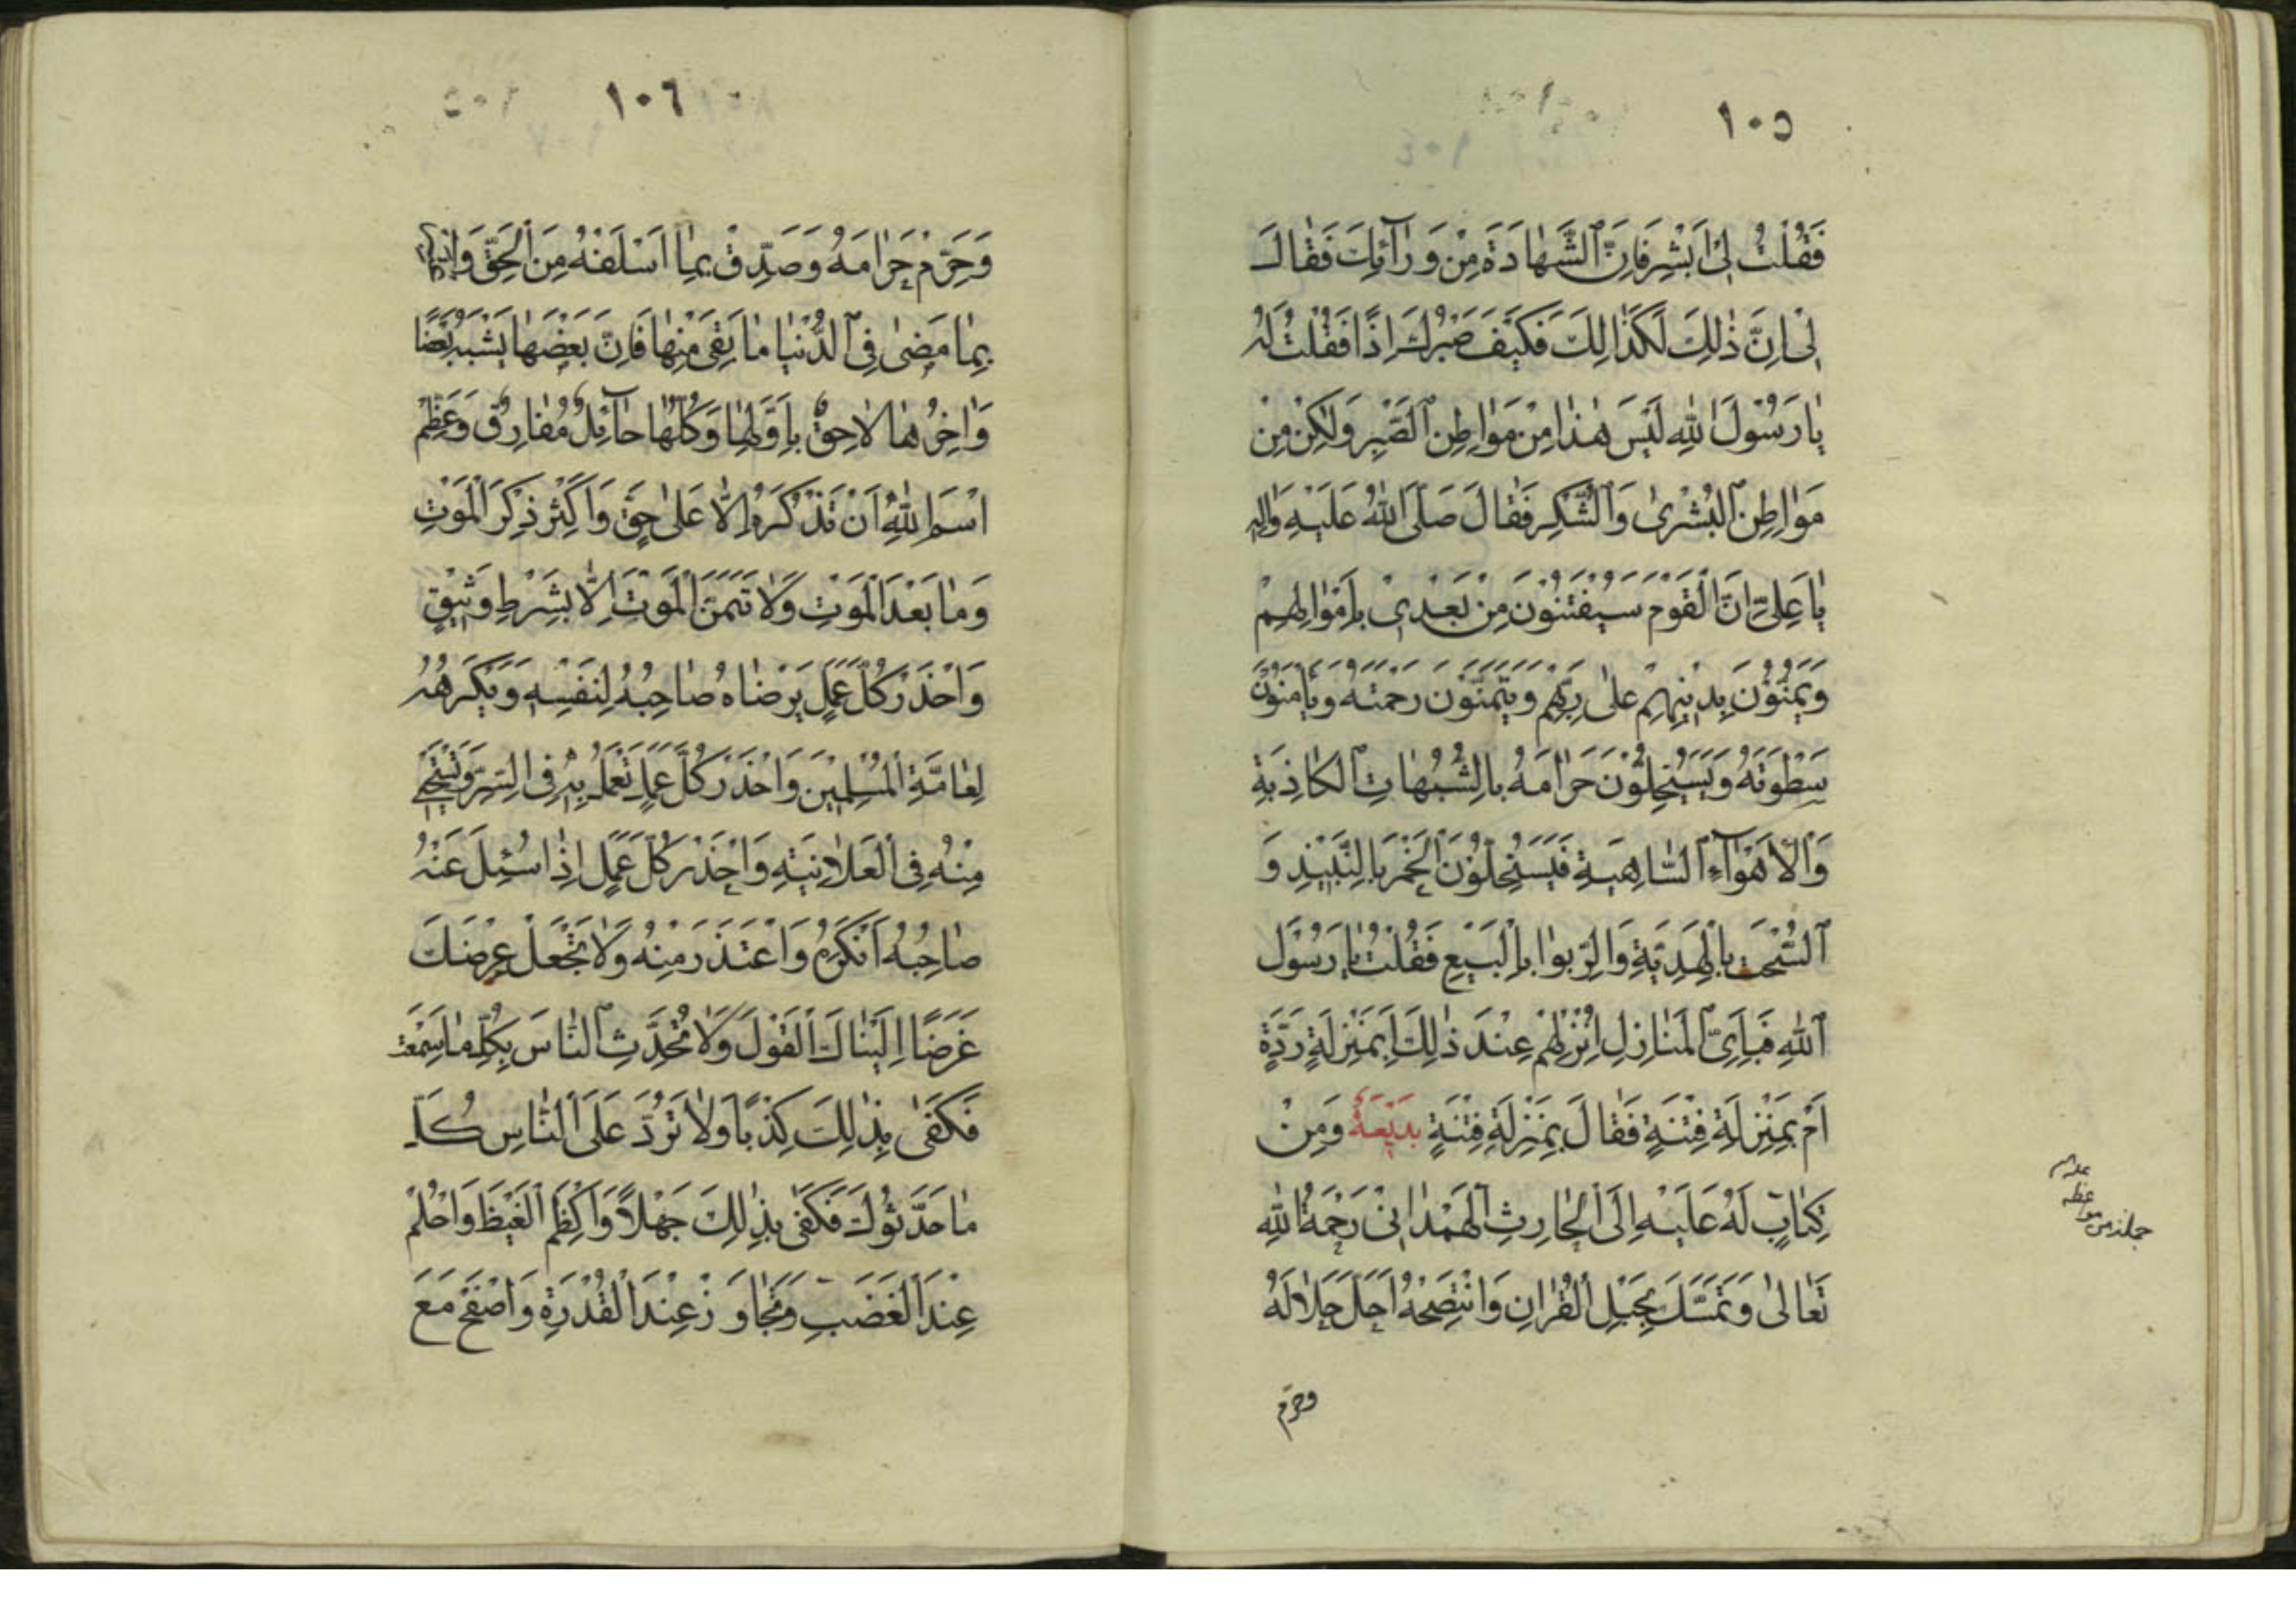 ١٠٥
فَقُلْتَ لِي اَبْشِرْ فَاِنَّ الشَّهَادَةَ مِنْ وَرَآئِكَ فَقَالَ
لِي اِنَّ ذٰلِكَ لَكَذَالِكَ فَكَيْفَ صَبْرُكَ اِذًا فَقُلْتُ لَهُ
يَا رَسُوْلَ اللهِ لَيْسَ هٰذَا مِنْ مَوَاطِنِ الصَّبْرِ وَلٰكِنْ مِنْ
مَوَاطِنِ الْبُشْرىٰ وَالشُّكْرِ فَقَالَ صَلَّى اللهُ عَلَيْهِ وَاٰلِهِ
يَا عَلِيُّ اِنَّ الْقَوْمَ سَيُفْتَنُوْنَ مِنْ بَعْدِيْ بِاَمْوَالِهِمْ
وَيَمُنُّوْنَ بِدِيْنِهِمْ عَلىٰ رَبِّهِمْ وَيَتَمَنَّوْنَ رَحْمَتَهُ وَيَأْمَنُوْنَ
سَطْوَتَهُ وَيَسْتَحِلُّوْنَ حَرَامَهُ بِالشُّبُهَاتِ الْكَاذِبَةِ
وَالْاَهْوَآءِ السَّاهِيَةِ فَيَسْتَحِلُّوْنَ الْخَمْرَ بِالنَّبِيْذِ وَ
السُّحْتَ بِالْهَدِيَّةِ وَالرِّبوا بِالْبَيْعِ فَقُلْتُ يَا رَسُوْلَ
اللهِ فَبِاَيِّ الْمَنَازِلِ اُنْزِلُهُمْ عِنْدَ ذٰلِكَ اَبِمَنْزِلَةِ رَدَّةٍ
اَمْ بِمَنْزِلَةِ فِتْنَةٍ فَقَالَ بِمَنْزِلَةِ فِتْنَةٍ بديعة وَمِنْ
كِتَابٍ لَهُ عَلَيْهِ اِلَى الْحَارِثِ الْهَمْدَانِيْ رَحْمَةُ اللهِ
تَعَالىٰ وَتَمَسَّكْ بِحَبْلِ الْقُرْاٰنِ وَانْتَصِحْهُ اَحِلَّ حَلَالَهُ
وحرم
١٠٦
وَحَرِّمْ حَرَامَهُ وَصَدِّقْ بِمَا اَسْلَفَهُ مِنَ الْحَقِّ
بِمَا مَضىٰ فِي الدُّنْيَا مَا بَقِيَ مِنْهَا فَاِنَّ بَعْضَهَا يَشْبَهُ بَعْضًا
وَاٰخِرُهَا لَاحِقٌ بِاَوَّلِهَا وَكُلُّهَا حَآئِلٌ مُفَارِقٌ وَعَظِّمْ
اسْمَ اللهِ اَنْ تَذْكُرَهُ اِلَّا عَلىٰ حَقٍّ وَاَكْثِرْ ذِكْرَ الْمَوْتِ
وَمَا بَعْدَ الْمَوْتِ وَلَا تَتَمَنَّ الْمَوْتَ اِلَّا بِشَرْطٍ وَثِيْقٍ
وَاحْذَرْ كُلَّ عَمَلٍ يَرْضَاهُ صَاحِبُهُ لِنَفْسِهِ وَيُكْرَهُهُ
لِعَامَّةِ الْمُسْلِمِيْنَ وَاحْذَرْ كُلَّ عَمَلٍ يُعْمَلُ بِهِ فِي السِّرِّ وَيُسْتَحْيٰ
مِنْهُ فِي الْعَلَانِيَةِ وَاحْذَرْ كُلَّ عَمَلٍ اِذَا سُئِلَ عَنْهُ
صَاحِبُهُ اَنْكَرَهُ وَاعْتَذَرَ مِنْهُ وَلَا تَجْعَلْ عِرْضَكَ
غَرَضًا الْقَوْلَ وَلَا تُحَدِّثِ النَّاسَ بِكُلِّ مَا سَمِعْتَ
فَكَفىٰ بِذٰلِكَ كِذْبًا وَلَا تَرُدَّ عَلَى النَّاسِ كُلَّ
مَا حَدَّثُوْكَ فَكَفىٰ بِذٰلِكَ جَهْلًا وَاكْظِمِ الْغَيْظَ وَاحْلُمْ
عِنْدَ الْغَضَبِ وَتَجَاوَزْ عِنْدَ الْقُدْرَةِ وَاصْفَحْ مَعَ